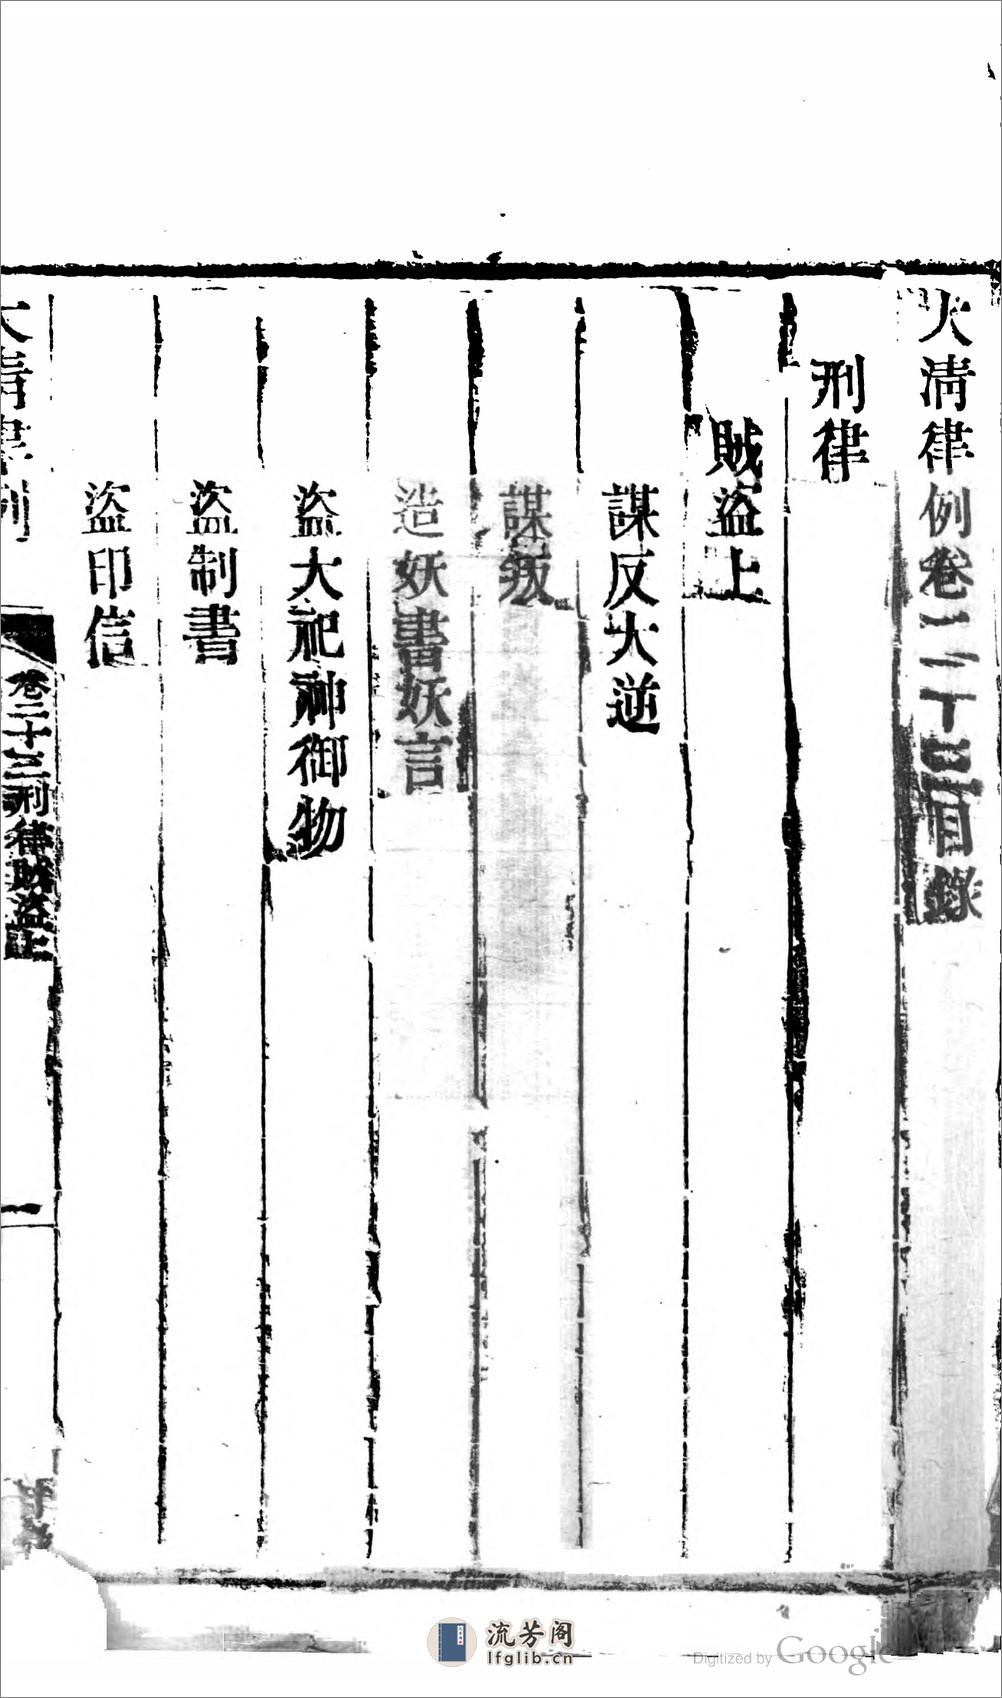 大清律例卷二十三目錄
刑律
賊盜上
謀反大逆
謀叛
造妖書妖言
盜大祀神御物
盜制書
盜印信
大清律例
卷二十三刑律賊盜上
一
流芳阁
lfglib.cn
Digitized by Google